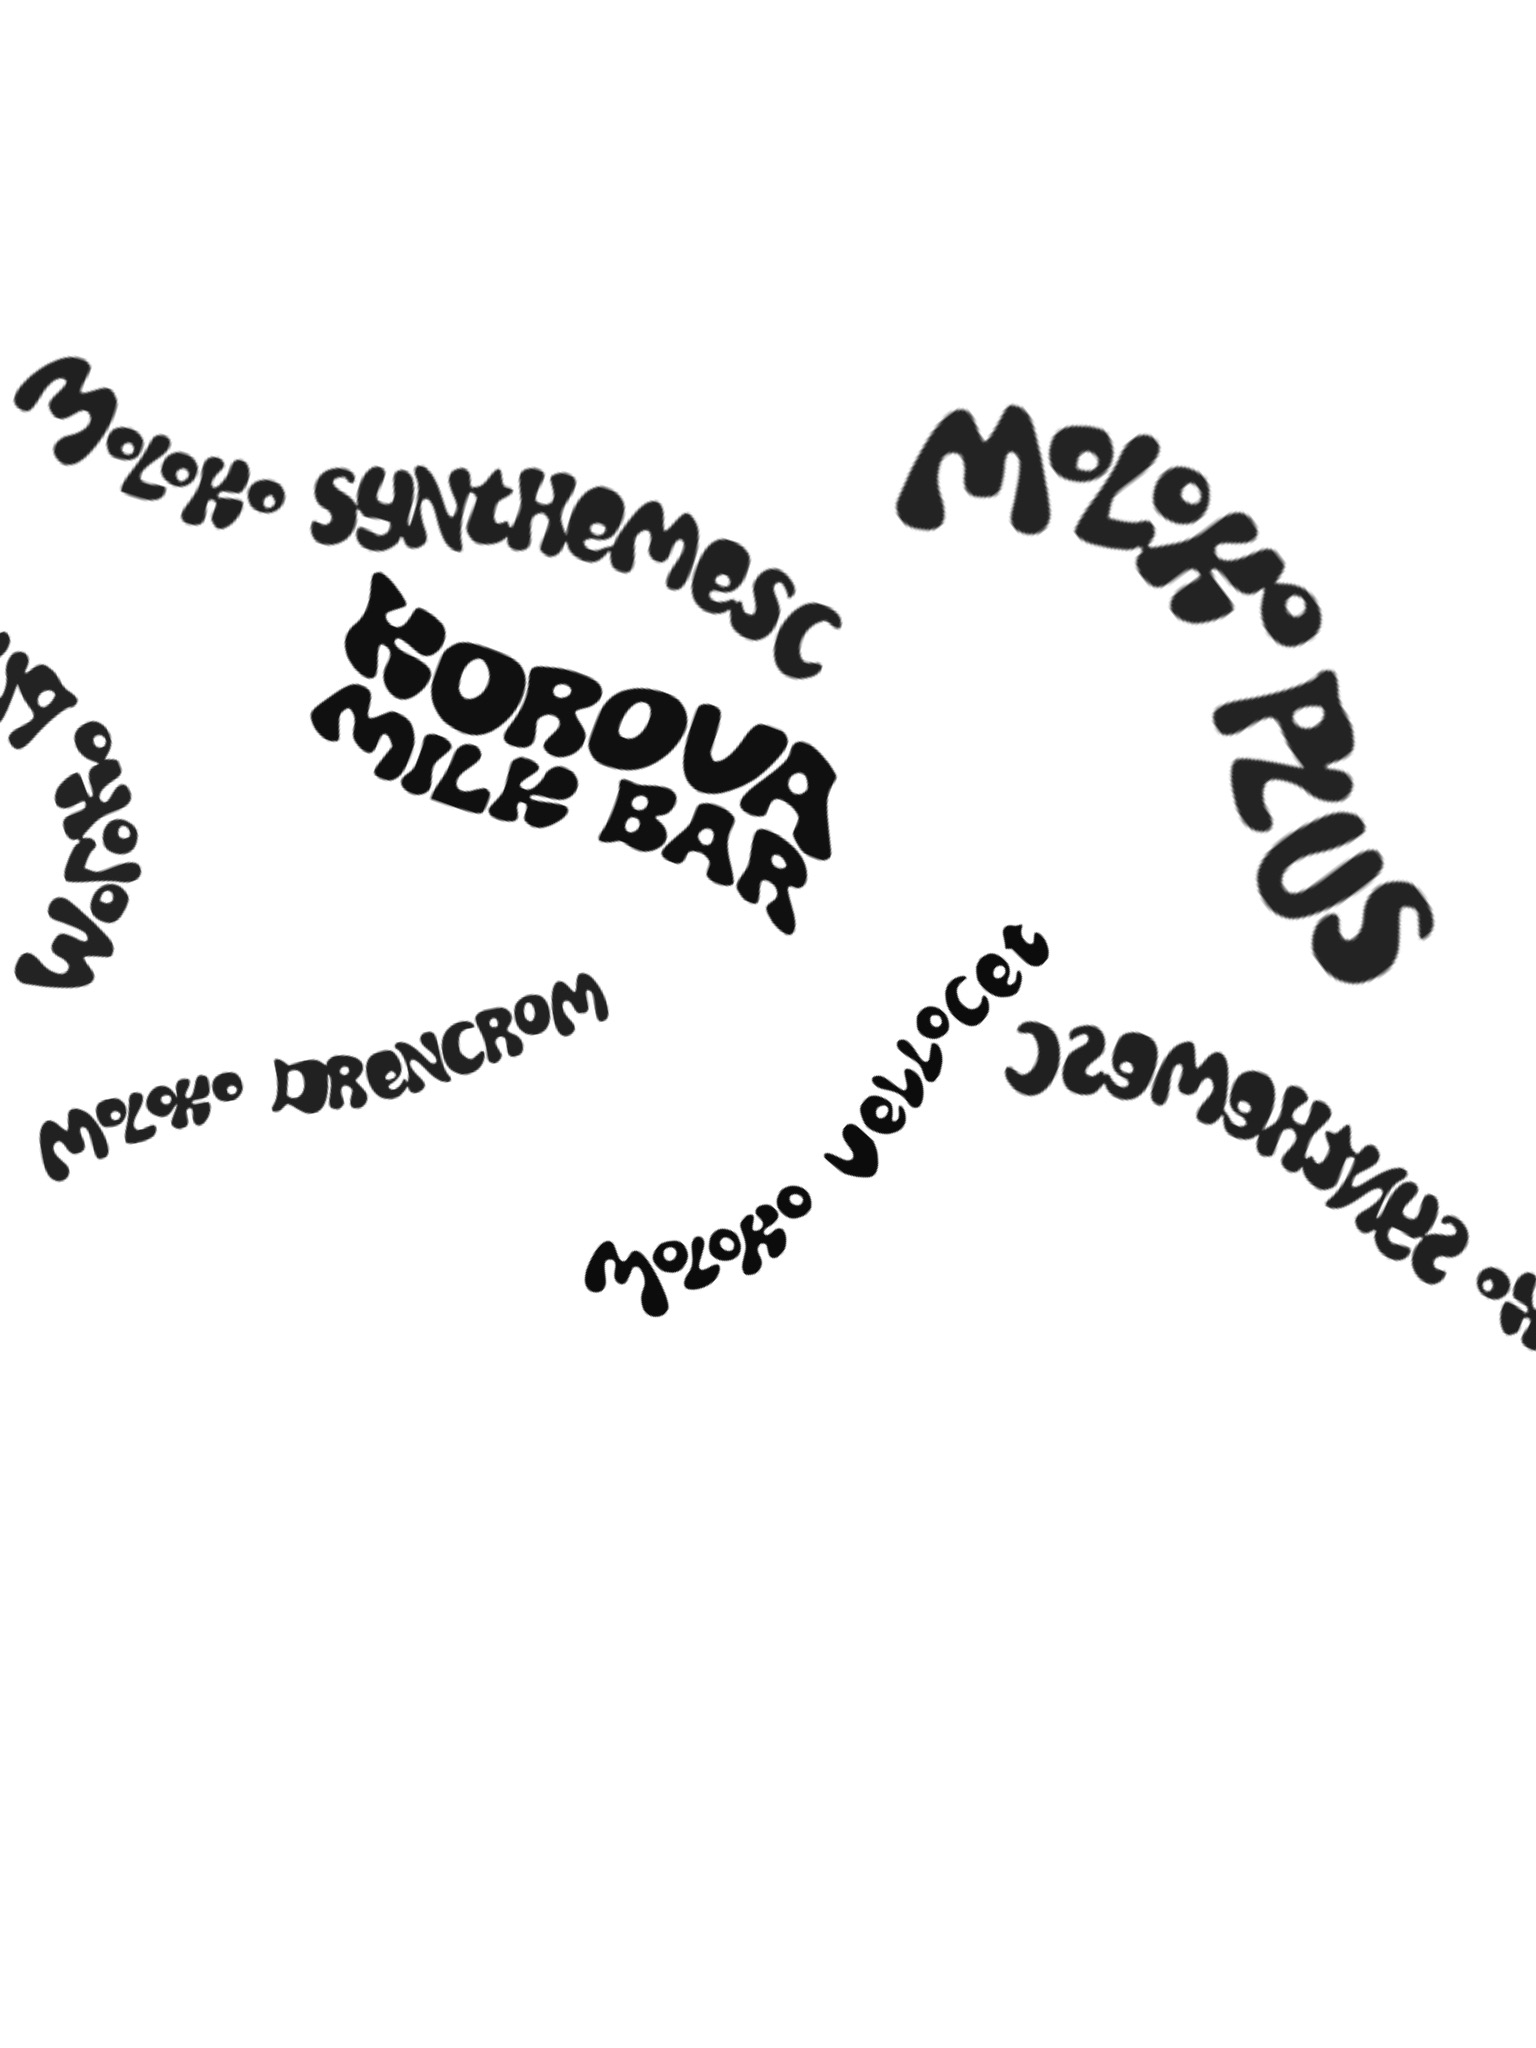 MoLoKo SYNtHeMesC
MoLoKo PLUS
KOROVA
MILK BAR
MoLoKo
MoLoKo DReNCROM
MoLoKo VeLLoCet
SYNtHeMesC